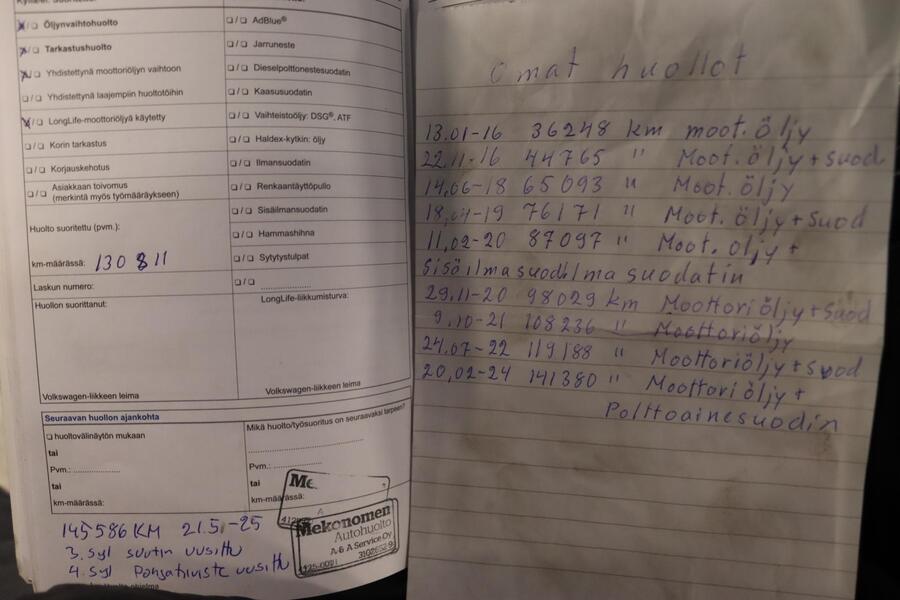 Öljynvaihtohuolto
Tarkastushuolto
Yhdistettynä moottoriöljyn vaihtoon
Yhdistettynä laajempiin huoltotöihin
LongLife-moottoriöljyä käytetty
Korin tarkastus
Korjauskehotus
Asiakkaan toivomo
(merkintä myös työmääräykseen)
Huolto suoritettu (pvm.):
km-määrässä: 130 811
Laskun numero:
Huollon suorittanut:
Volkswagen-liikkeen leima
AdBlue®
Jarruneste
Dieselpolttonestesuodatin
Kaasusuodatin
Vaihteistoöljy: DSG®, ATF
Haldex-kytkin: öljy
Ilmansuodatin
Renkaantäyttöpullo
Sisäilmansuodatin
Hammashihna
Sytytystulpat
LongLife-liikkumisturva:
Volkswagen-liikkeen leima
Seuraavan huollon ajankohta
huoltovälinäytön mukaan
tai
Pvm.:
tai
km-määrässä:
Mikä huolto/työsuoritus on seuraavaksi tarpeen?
Pvm.:
tai
km-määrässä:
Mekonomen
Autohuolto
A & A Service Oy
145586 KM 21.5.-25
3. syl suutin uusittu
4. syl Pohjatiiviste uusittu
Omat huollot
13.01-16 36248 km moot.öljy
22.11-16 44765 " Moot.öljy+suod
14.06-18 65093 " Moot.öljy
18.04-19 76171 " Moot.öljy+suod
11.02-20 87097 " Moot.öljy+
Sisöilmasuod.Ilmasuodatin
29.11-20 98029 km Moottoriöljy+suod
9.10-21 108236 " Moottoriöljy
24.07-22 119188 " Moottoriöljy+suod
20.02-24 141380 " Moottoriöljy+
Polttoainesuodin